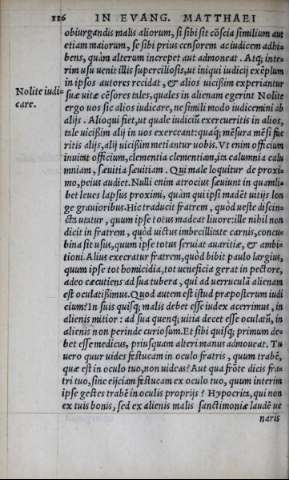 116 IN EVANG. MATTHAEI
obiurgandis malis aliorum, si sibi sit cōscia similium aut
etiam maiorum, se sibi prius censorem ac iudicem adhi-
bens, quàm alterum increpet aut admoneat. Atq; inte-
rim usu uenit illis superciliosis, ut iniqui iudicij exēplum
in ipsos autores recidat, & alios uicißim experiantur
Nolite iudi-
care.
suæ uitæ cēsores tales, quales in alienam egerint Nolite
ergo uos sic alios iudicare, ne simili modo iudicemini ab
alijs. Alioqui fiet, ut quale iudiciū exercueritis in alios,
tale uicißim alij in uos exerceant: quaq; mēsura mēsi fue
ritis alijs, alij uicißim metiantur uobis. Vt enim officium
inuitat officium, clementia clementiam, ita calumnia calu
mniam, sæuitia sæuitiam. Qui male loquitur de proxi-
mo, peius audiet. Nulli enim atrocius sæuiunt in quamli-
bet leues lapsus proximi, quàm qui ipsi madēt uitijs lon
ge grauioribus. Hic traducit fratrem, quòd ueste discin-
cta utatur, quum ipse totus madeat liuore: ille nihil non
dicit in fratrem, quòd uictus imbecillitate carnis, concu-
bina sit usus, quum ipse totus seruiat auaritiæ, & ambi-
tioni. Alius execratur fratrem, quòd bibit paulo largius,
quum ipse tot homicidia, tot ueneficia gerat in pectore,
adeo cæcutiens ad sua tubera, qui ad uerrucula alienam
est oculatißimus. Quod autem est istud præposterum iudi
cium? In suis quisq; malis debet esse iudex acerrimus, in
alienis mitior: ad sua quenq; uitia decet esse oculatū, in
alienis non perinde curiosum. Et sibi quisq; primum de-
bet esse medicus, priusquam alteri manus admoueat. Tu
uero quur uides festucam in oculo fratris, quum trabē,
quæ est in oculo tuo, non uideas? Aut qua frōte dicis fra-
tri tuo, sine eijciam festucam ex oculo tuo, quum interim
ipse gestes trabē in oculis proprijs? Hypocrita, qui non
ex tuis bonis, sed ex alienis malis sanctimoniæ laudē ue
naris